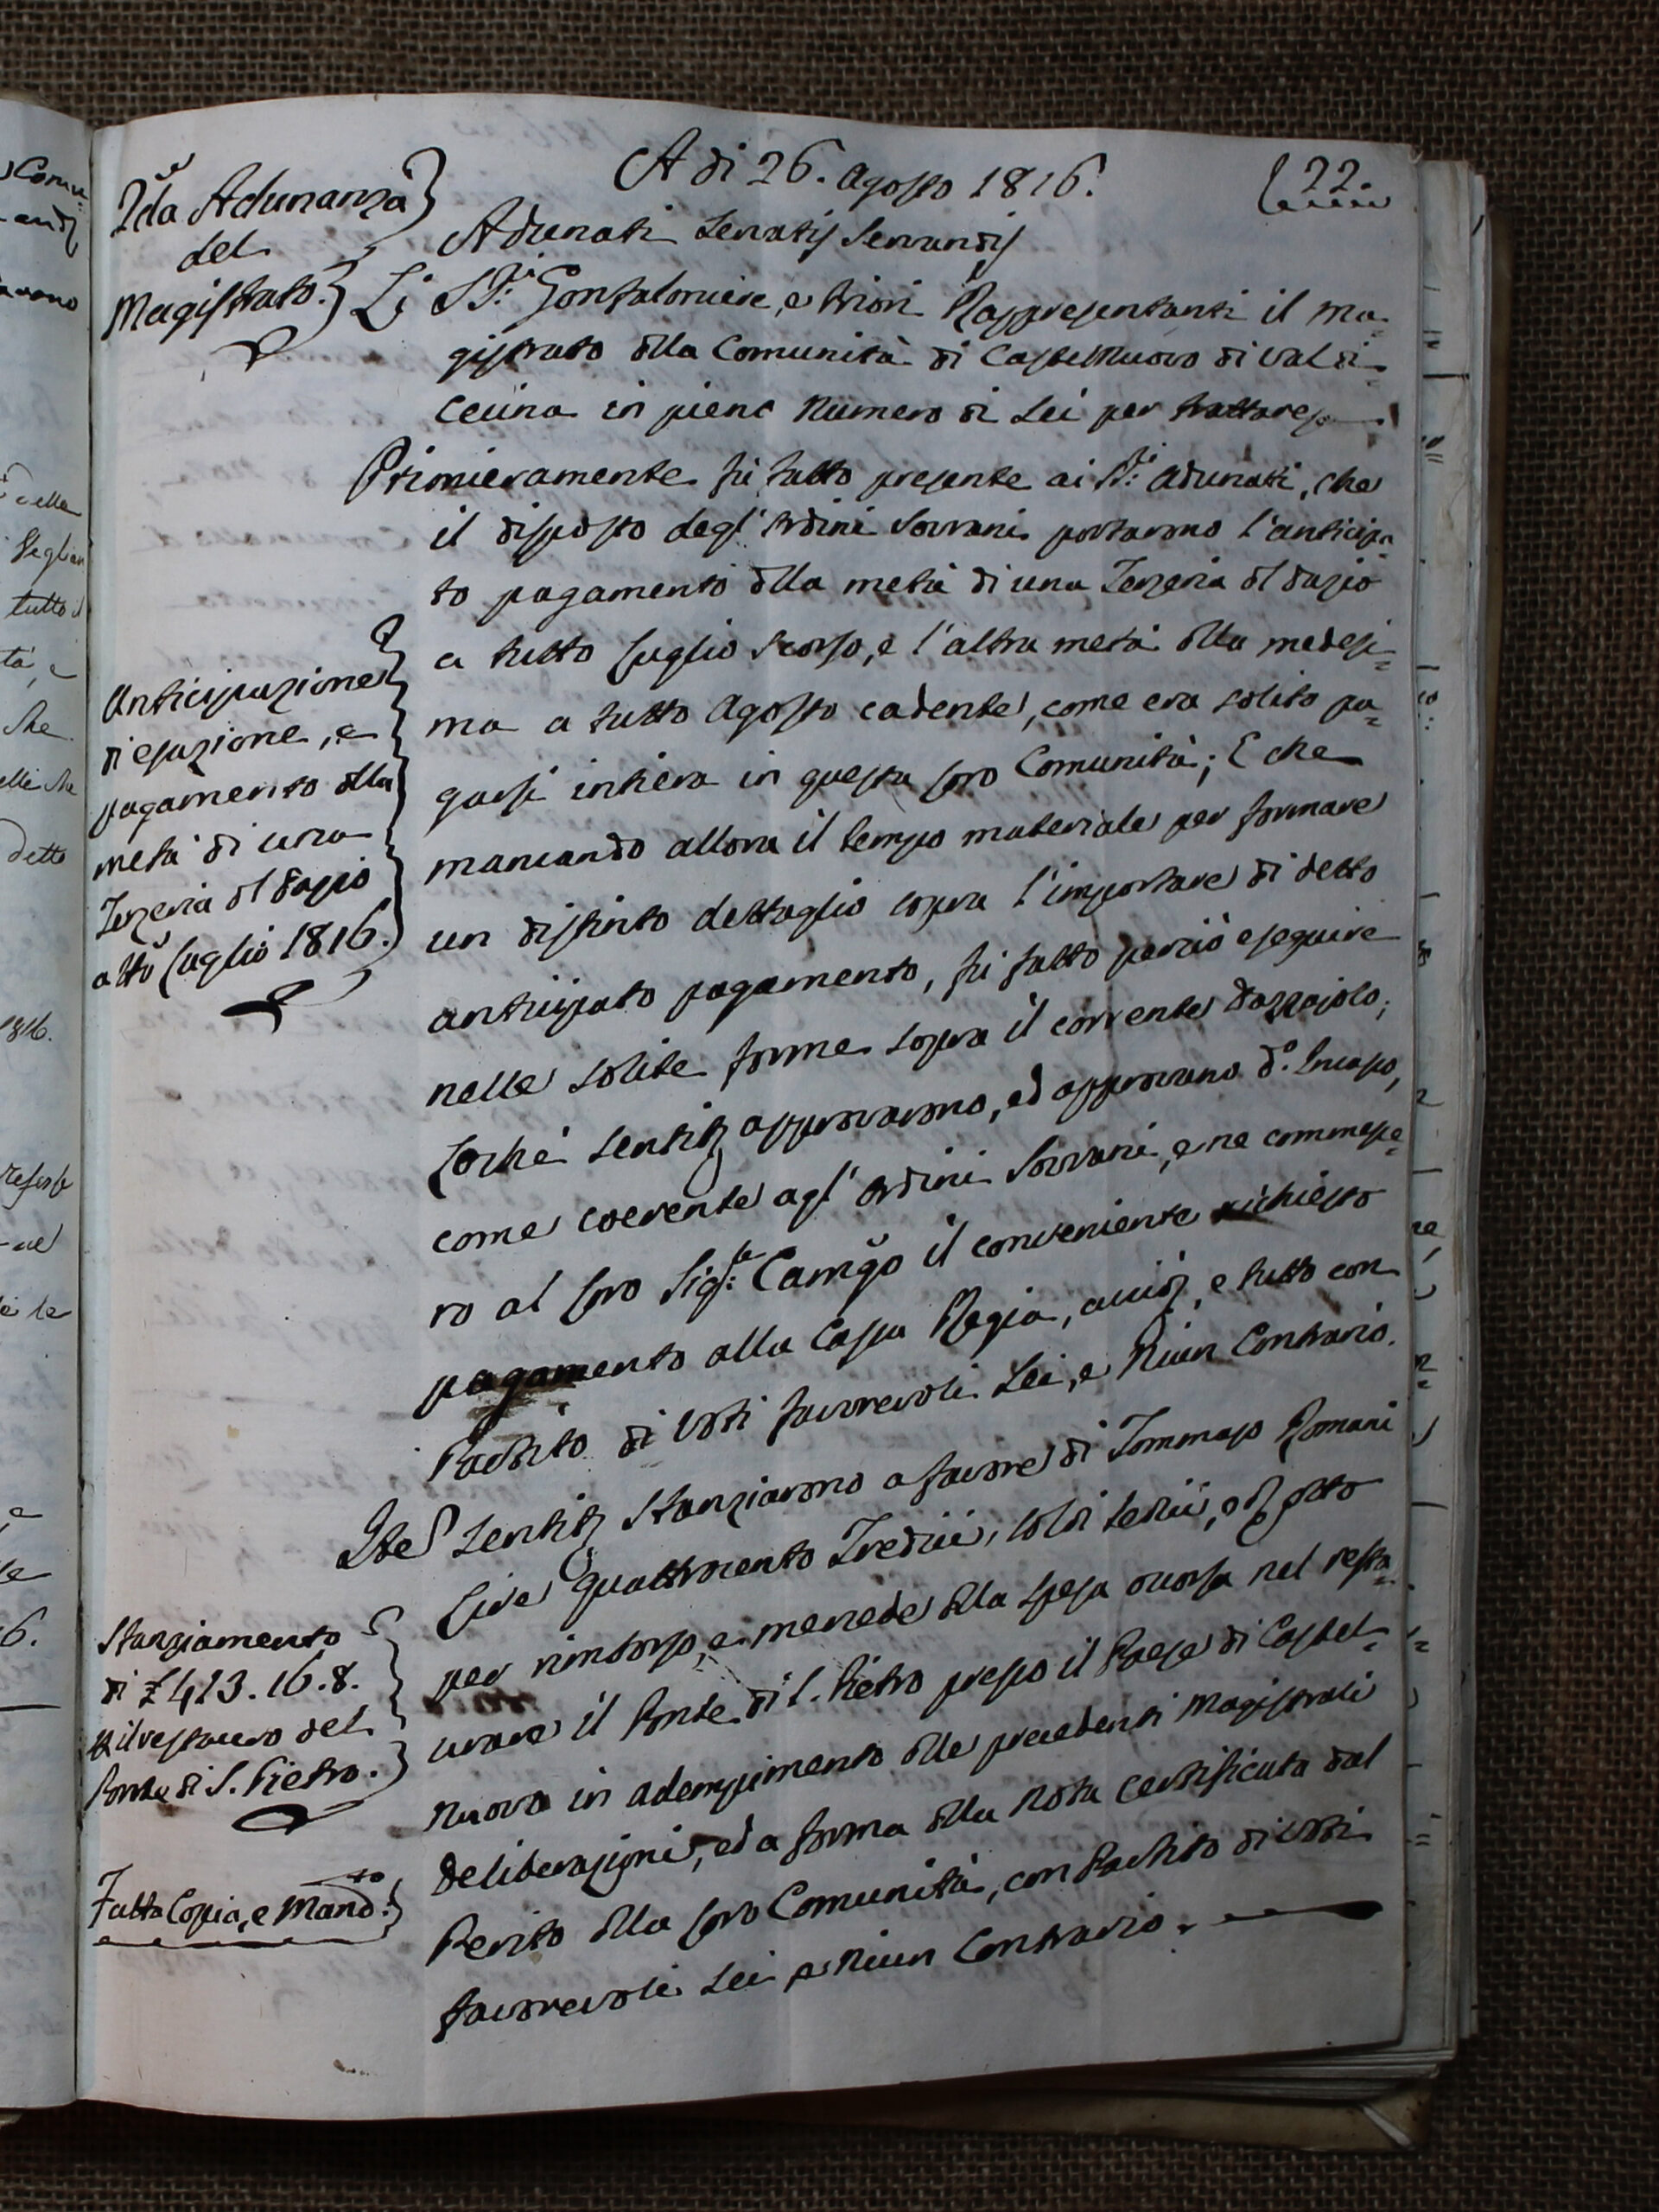 A di 26. Agosto 1816.
22.
2da Adunanza
del
Magistrato.
Adunati Servatis Servandis
Li SS:ri Gonfaloniere, e Priori Rappresentanti il Ma=
gistrato della Comunità di Castelnuovo di Val di
Cecina in pieno Numero di Sei per trattare
Primieramente fù fatto presente ai SS:ri Adunati, che
il disposto degl'Ordini Sovrani portavono l'anticipa=
to pagamento della metà di una Terzeria del dazio
a tutto Luglio scorso, e l'altra metà della medesi=
ma a tutto Agosto cadente, come era solito pa=
garsi intiera in questa loro Comunità; E che
mancando allora il tempo materiale per formare
un distinto dettaglio sopra l'importare di detto
anticipato pagamento, fù fatto perciò eseguire
nelle solite forme sopra il corrente Dazzajolo;
Loche sentitz approvarono, ed approvano do. Incasso,
come coerente agl'Ordini Sovrani, e ne commese=
ro al loro Sigr: Camgo il conveniente richiesto
pagamento alla Cassa Regia, e tutto con
Partito di Voti favorevoli Sei, e Niun Contrario.
Anticipazione
di esazione, e
pagamento della
metà di una
Terzeria del Dazio
a tto Luglio 1816.
Ite Sentitz Stanziarono a favore di Tommaso Romani
Lire quattrocento Tredici, soldi sedici, e dz otto
per rimborso, e mercede della spesa occorsa nel resta=
urare il Ponte di S. Pietro presso il Paese di Castel=
nuovo in adempimento delle precedenti Magistrali
Deliberazioni, ed a forma della Nota Certificata dal
Perito della loro Comunità, con Partito di Voti
favorevoli Sei e Niun Contrario.
Stanziamento
di £ 413. 16. 8.
p il restauro del
Ponte di S. Pietro.
Fatta Copia, e Mandto: